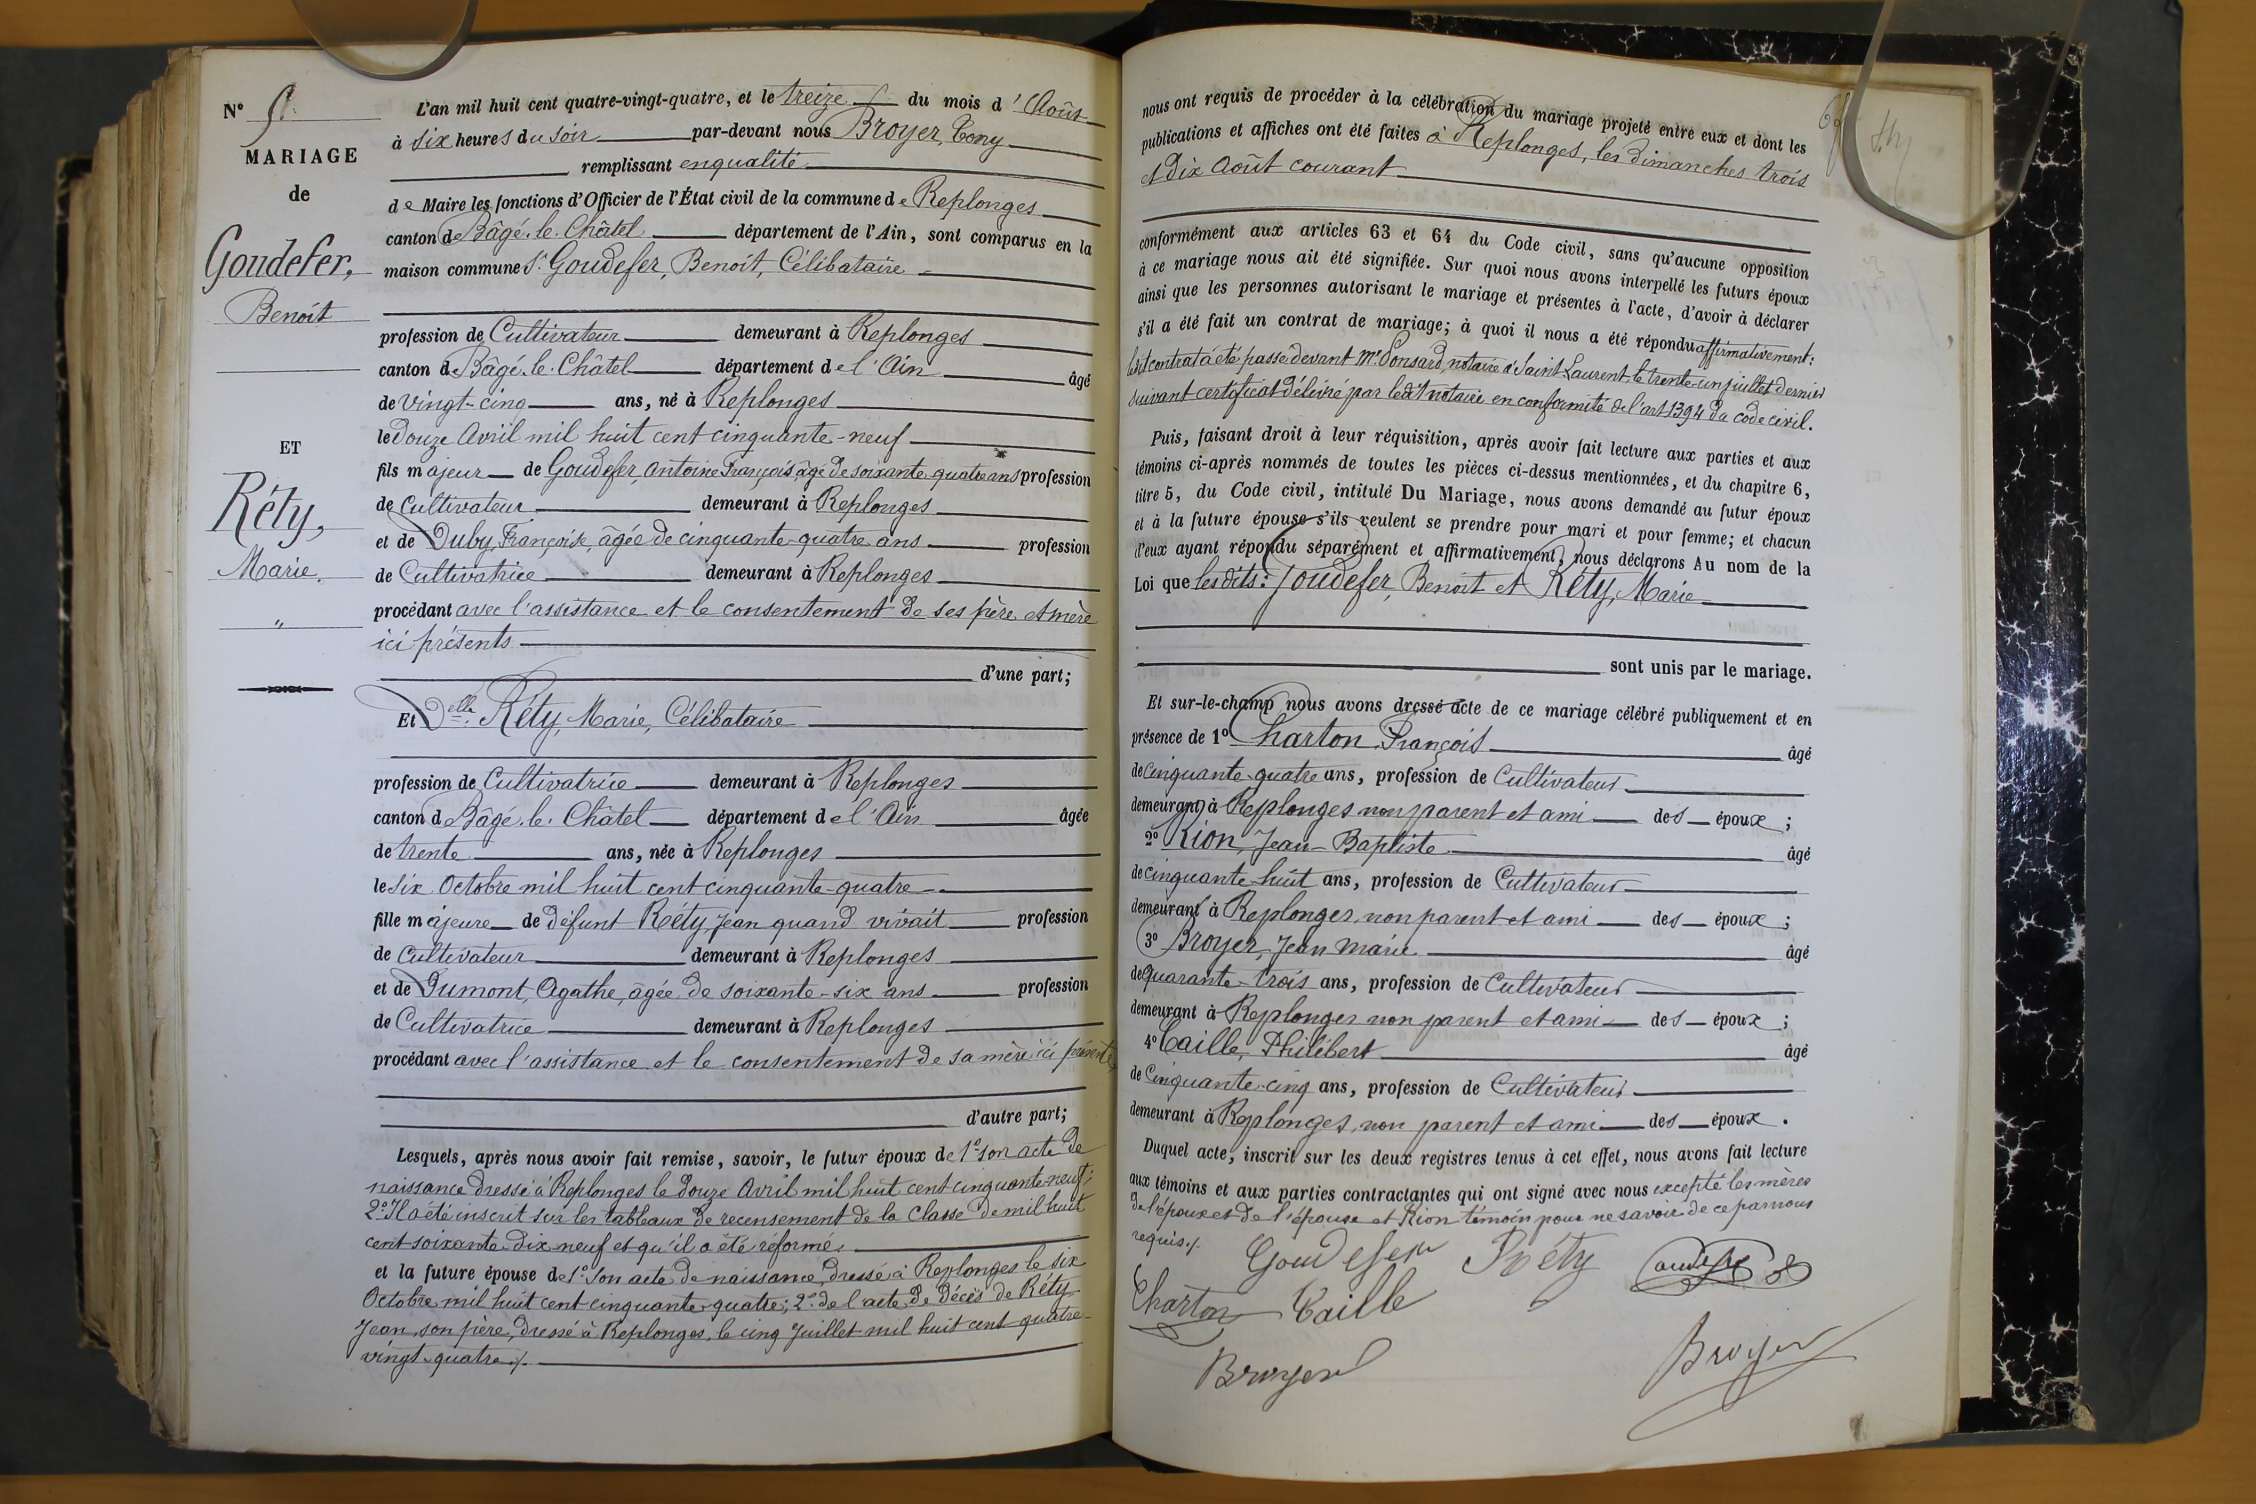 N° 9
MARIAGE
de
Goudefer,
Benoît
ET
Réty,
Marie.
"
L'an mil huit cent quatre-vingt-quatre, et le treize du mois d'Août
à six heures du soir par-devant nous Broyer, Tony
remplissant en qualité
de Maire les fonctions d'Officier de l'État civil de la commune de Replonges
canton de Bâgé-le-Châtel département de l'Ain, sont comparus en la
maison commune Sr Goudefer, Benoît, Célibataire
profession de Cultivateur demeurant à Replonges
canton de Bâgé-le-Châtel département de l'Ain âgé
de vingt-cinq ans, né à Replonges
le Douze Avril mil huit cent cinquante-neuf
fils majeur de Goudefer, Antoine François, âgé de soixante quatre ans profession
de Cultivateur demeurant à Replonges
et de Duby, Françoise, âgée de cinquante-quatre ans profession
de Cultivatrice demeurant à Replonges
procédant avec l'assistance et le consentement de ses père et mère
ici présents
d'une part;
Et Delle Réty, Marie, Célibataire
profession de Cultivatrice demeurant à Replonges
canton de Bâgé-le-Châtel département de l'Ain âgée
de trente ans, née à Replonges
le six Octobre mil huit cent cinquante-quatre
fille majeure de défunt Réty, Jean quand vivait profession
de Cultivateur demeurant à Replonges
et de Dumont, Agathe, âgée de soixante-six ans profession
de Cultivatrice demeurant à Replonges
procédant avec l'assistance et le consentement de sa mère ici présente
d'autre part;
Lesquels, après nous avoir fait remise, savoir, le futur époux de 1° son acte de
naissance dressé à Replonges le Douze Avril mil huit cent cinquante-neuf;
2° Il a été inscrit sur les tableaux de recensement de la Classe de mil huit
cent soixante-dix neuf et qu'il a été réformé.
et la future épouse de 1° Son acte de naissance, dressé à Replonges le six
Octobre mil huit cent cinquante-quatre; 2° de l'acte de Décès de Réty
Jean, son père, dressé à Replonges, le cinq Juillet mil huit cent quatre-
vingt-quatre./.
nous ont requis de procéder à la célébration du mariage projeté entre eux et dont les
publications et affiches ont été faites à Replonges, les dimanches trois
et dix Août courant
conformément aux articles 63 et 64 du Code civil, sans qu'aucune opposition
à ce mariage nous ait été signifiée. Sur quoi nous avons interpellé les futurs époux
ainsi que les personnes autorisant le mariage et présentes à l'acte, d'avoir à déclarer
s'il a été fait un contrat de mariage; à quoi il nous a été répondu affirmativement:
ledit contrat a été passé devant Me Ponsard, notaire à Saint-Laurent, le trente-un juillet dernier
suivant certificat délivré par ledit notaire en conformité de l'art 1394 du code civil.
Puis, faisant droit à leur réquisition, après avoir fait lecture aux parties et aux
témoins ci-après nommés de toutes les pièces ci-dessus mentionnées, et du chapitre 6,
titre 5, du Code civil, intitulé Du Mariage, nous avons demandé au futur époux
et à la future épouse s'ils veulent se prendre pour mari et pour femme; et chacun
d'eux ayant répondu séparément et affirmativement, nous déclarons Au nom de la
Loi que lesdits: Goudefer, Benoît et Réty, Marie
sont unis par le mariage.
Et sur-le-champ nous avons dressé acte de ce mariage célébré publiquement et en
présence de 1° Charton, François âgé
de cinquante-quatre ans, profession de Cultivateur
demeurant à Replonges non parent et ami des époux ;
2° Rion, Jean-Baptiste âgé
de cinquante huit ans, profession de Cultivateur
demeurant à Replonges, non parent et ami des époux ;
3° Broyer, Jean Marie âgé
de quarante-trois ans, profession de Cultivateur
demeurant à Replonges non parent et ami des époux ;
4° Caille, Philibert âgé
de Cinquante-cinq ans, profession de Cultivateur
demeurant à Replonges, non parent et ami des époux .
Duquel acte, inscrit sur les deux registres tenus à cet effet, nous avons fait lecture
aux témoins et aux parties contractantes qui ont signé avec nous excepté les mères
de l'époux et de l'épouse et Rion témoin pour ne savoir de ce par nous
requis./.
Goudefer Réty
Charton Caille
Broyer Broyer